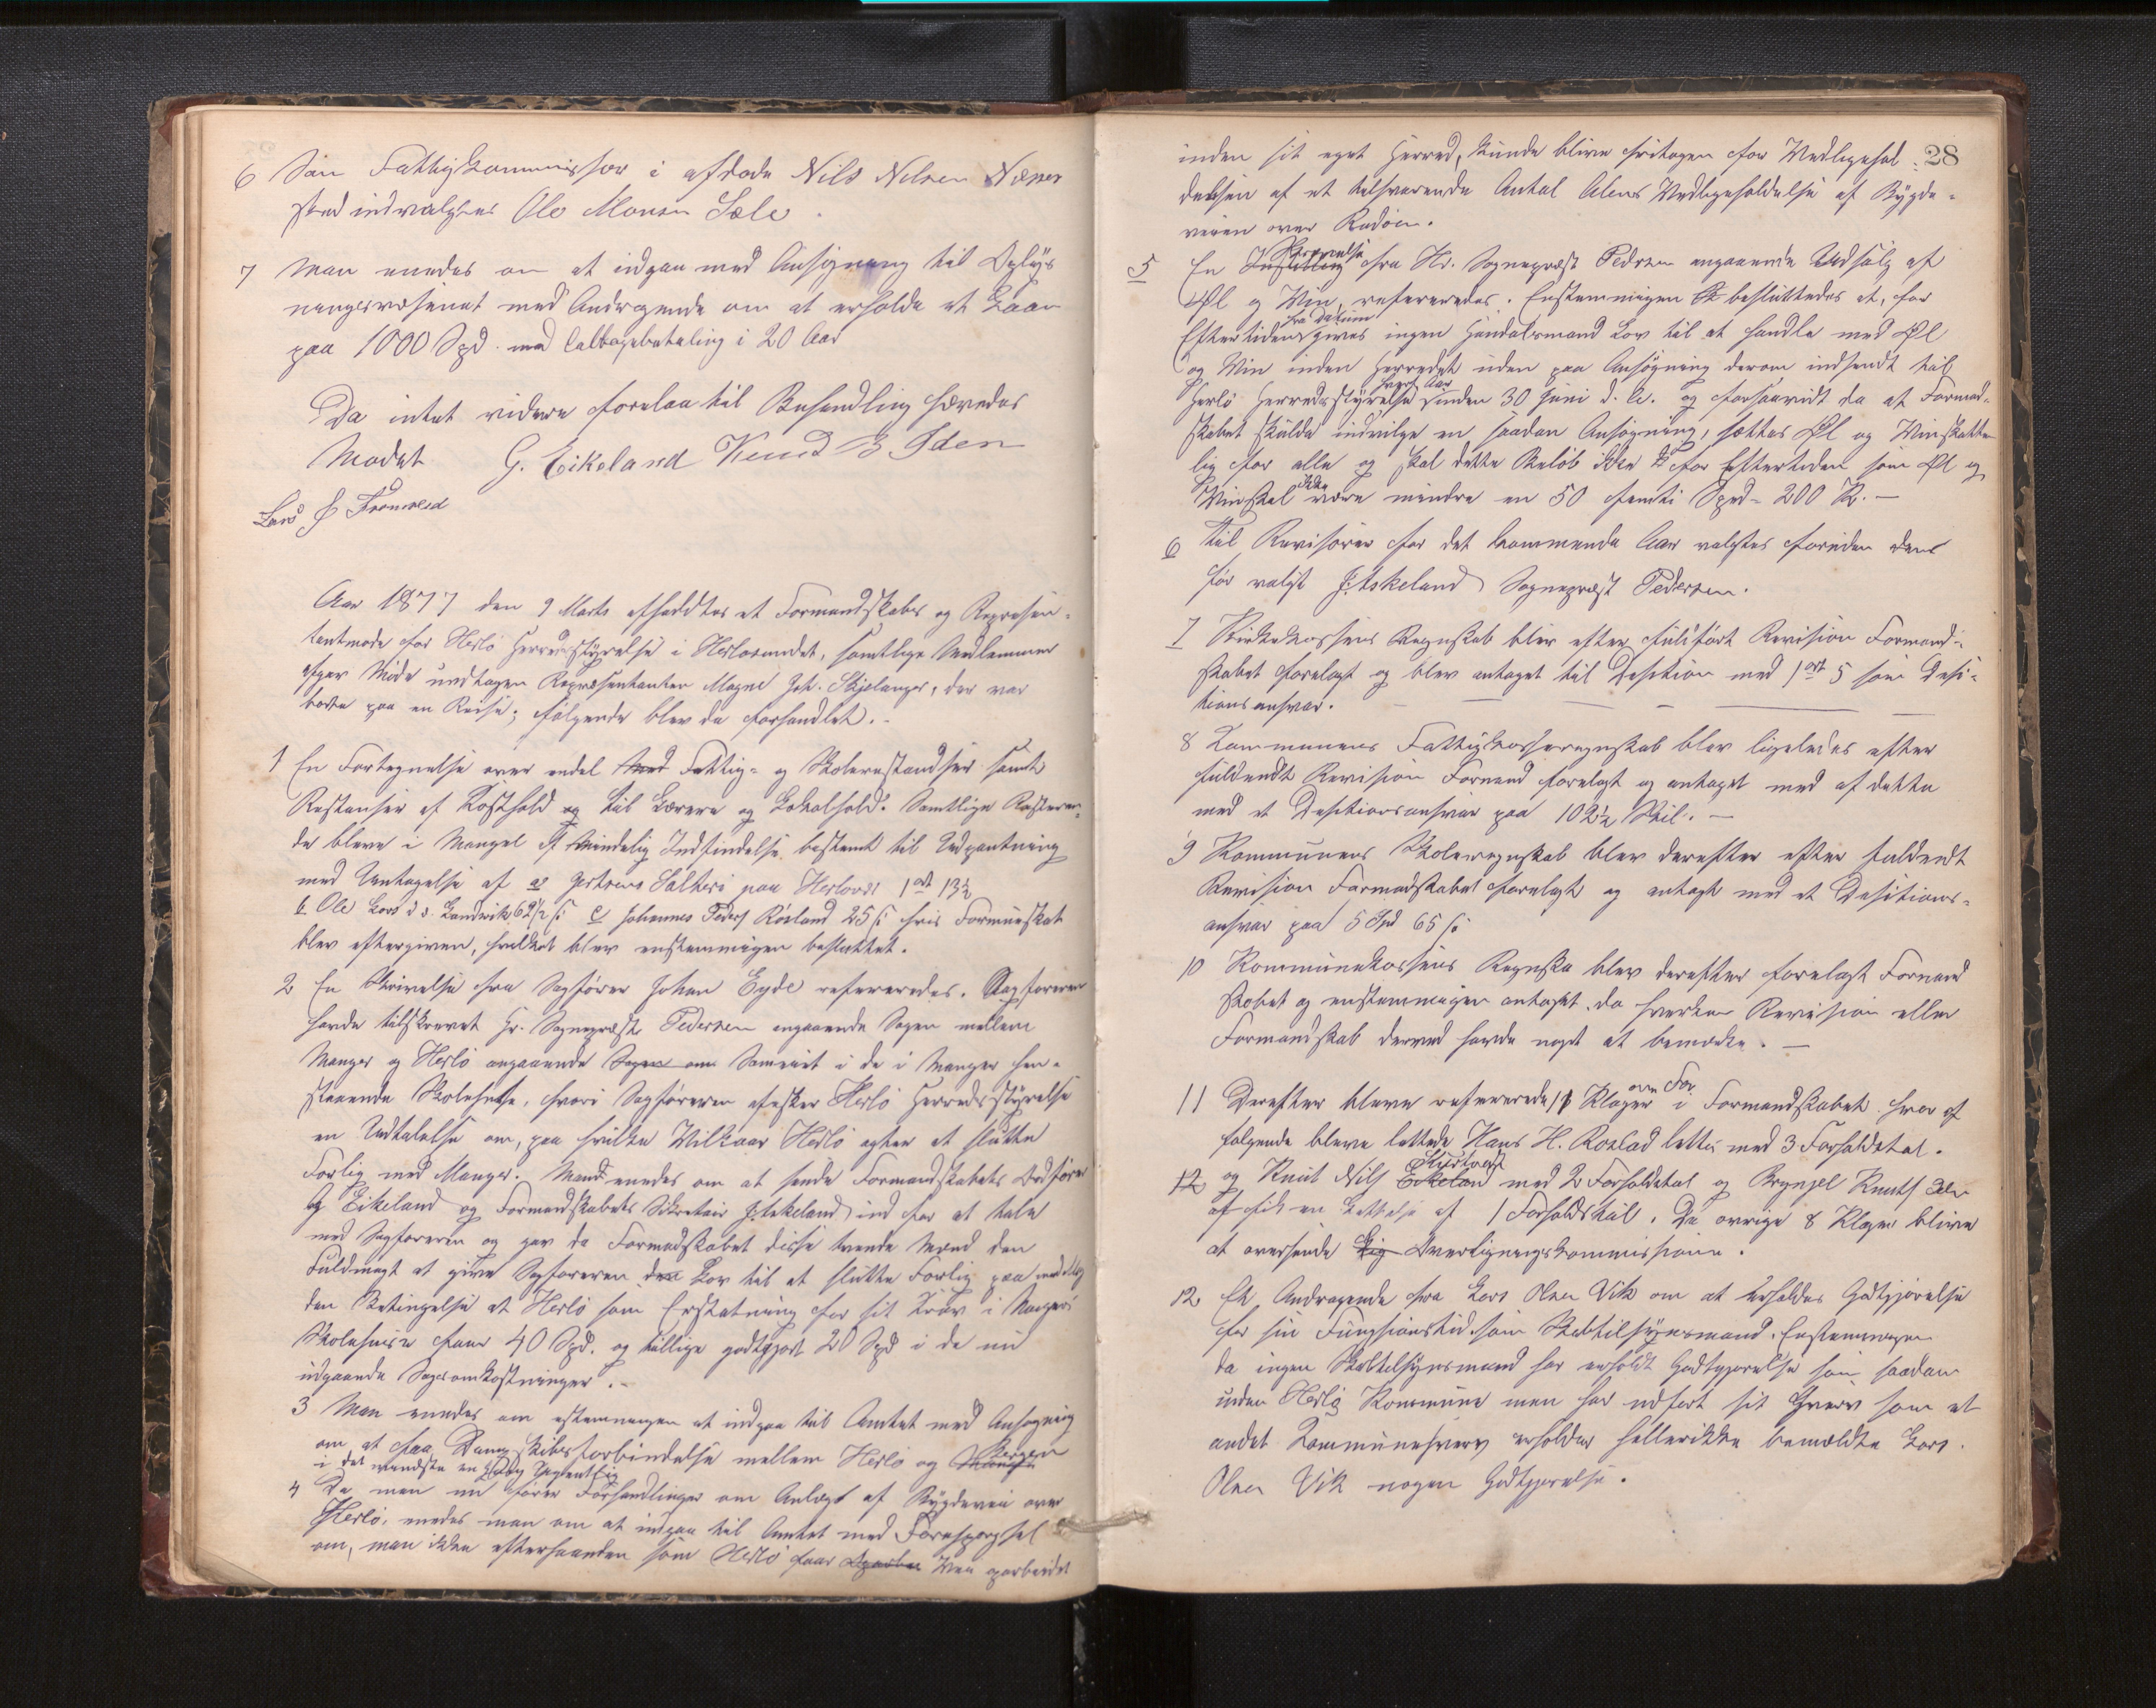 6 Som Fattigkommissær i afdøde Nils Nilsen Næses
sted indvalgtes Ole Monsen Sæle.
7 Man enedes om at indgaa med Ansøgning til Oplys
ningsvæsenet med Andragende om at erholde et Laan
paa 1000 Spd. med Tilbagebetaling i 20 Aar
Da intet videre forelaa til Behandling hævedes
Mødet G. Eikeland Knud B Iden
Lars J Fromreid
Aar 1877 den 9 Marts afholdtes et Formandskabs og Represen-
tantmøde for Herlø Herredsstyrelse i Herløsundet, samtlige Medlemmer
afgav Møde undtagen Repræsentanten Magne Joh. Skjelanger, der var
borte paa en Reise; følgende blev da forhandlet.-
1 En Fortegnelse over endel Fattig- og Skolerestandser samt
Restanser af Kosthold og til Lærere og Lokalhold. Samtlige Resteren-
de bleve i Mangel af mindelig Indfindelse bestemt til Udpantning
med Untagelse af a) Salthe paa Herløvær 1 ort 13½
b. Ole Lars d.s. Landvik 62½ ß c) Johannes Peders Røsland 25 ß hvis Formueskat
blev eftergiven, hvilket blev enstemmigen besluttet.
2 En Skrivelse fra Sagfører Johan Eyde refereredes. Sagføreren
havde tilskrevet Hr. Sogneprest Pedersen angaaende Sagen mellem
Manger og Herlø angaaende Sagen om Sameiet i de i Manger hen-
staaende Skolehuse, hvori Sagføreren afæsker Herlø Herredsstyrelse
en Udtalelse om, paa hvilke Vilkaar Herlø agter at slutte
Forlig med Manger. Mand enedes om at sende Formandskabets Ordfører
G Eikeland og Formandskabets Sikretair J. Askeland ind for at tale
med Sagføreren og gav da Formandskabet disse tvende Mænd den
Fuldmagt at give Sagføreren den Lov til at slutte Forlig paa
den Betingelse at Herlø som Erstatning for sit Krav i Mangers
Skolehuse faar 40 Spd. og tillige godtgjort 20 Spd i de nu
udgaaende Sagsomkostninger.-
3 Man enedes om estemmigen at indgaa til Amtet med Ansøgning
om at faa Dampskibsforbindelse mellem Herlø og Bergen
i det mindste en Gang Ugentlig
4 Da man nu fører Forhandlinger om Anlæg af Bygdevei over
Herlø, enedes man om at indgaa til Amtet med Forespørgsel
om, man ikke efterhaanden som Herlø faar Vei oparbeidet
28
inden sit eget Herred, kunde blive fritagen for Vedligehol-
delsen af et tilsvarende Antal Alens Vedligeholdelse af Bygde-
veien over Radøen.
Skrivelse
5 En fra Hr. Sogneprest Pedrsen angaaende Udsalg af
Øl og Vin, refereredes. Enstemmigen besluttedes at, for
fra Datum
Eftertiden gives ingen Handelsmand Lov til at handle med Øl
og Vin inden Herredet uden paa Ansøgning derom indsendt til
hvert Aar
Herlø Herredsstyrelse inden 30 Juni d. A. og forsaavidt da at Formad-
skabet skulde indvilge en saadan Ansøgning, sættes Øl og Vinskatten
lig for alle og skal dette Beløb ikke for Eftertiden som Øl og
Vinskat ikke være mindre en 50 femti Sped = 200 Kr.-
6 Til Revisorer for det kommende Aar valgtes foruden den
før valgt J. Askeland Sogneprest Pedersen.
7 Kirkekassens Regnskab blev efter fuldført Revision Formand-
skabet forelagt og blev antaget til Desition med 1 ort 5 som Desi-
tionsansvar.
8 Kommunens Fattigkasseregnskab blev ligeledes efter
fuldendt Revision Formand forelagt og antaget med af dette
med et Desitionsansvar paa 102½ Skil.-
9 Kommunens Skoleregnskab blev derefter efter fuldendt
Revision Formadskabet forelagt og antagt med et Desitions-
ansvar paa 5 Spd 65 ß
10 Kommunekassens Regnska blev derefter forelagt Formand
skabet og enstemmigen antaget da hverken Revision eller
Formandskab derved havde noget at bemærke.-
11 Derefter bleve refererede 11 Klager i Formandskabet hvor af
følgende bleve lettede Hans H. Rosland lettes med 3 Forholdstal.
12 og Knut Nils med 2 Forholdstal og Brynjel Knuts
af fik en Lettelse af 1 Forholdstal. De øvrige 8 Klager blive
at oversende Overligningskommissionen.
12 Et Andragende fra Lars Olsen Vik om at erholde Godtgjørelse
for sin Fungsionstid som Skoletilsynsmand. Enstemmigen
da ingen Skoletilsynsmand har erholdt Godtgjørelse som saadan
inden Herlø Kommune men har udført sit Hverv som et
andet Kommunehverv erholder hellerikke bemeldte Lars
Olsen Vik nogen Godtgjørelse.